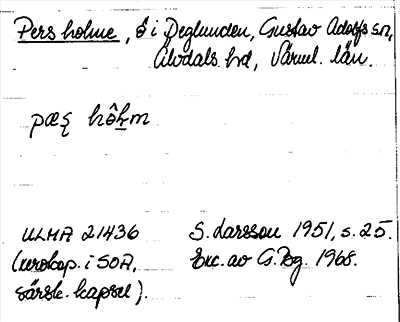 Persholme, ö i Deglunden, Gustav Adolfs sn,
Älvdals hd, Värml. län.
pæȩ hôḫm
ULMA 21436 S. Larsson 1951, s. 25.
(xerokop. i SOA, Exc. av G. Bg. 1968.
särsk. kapsel).